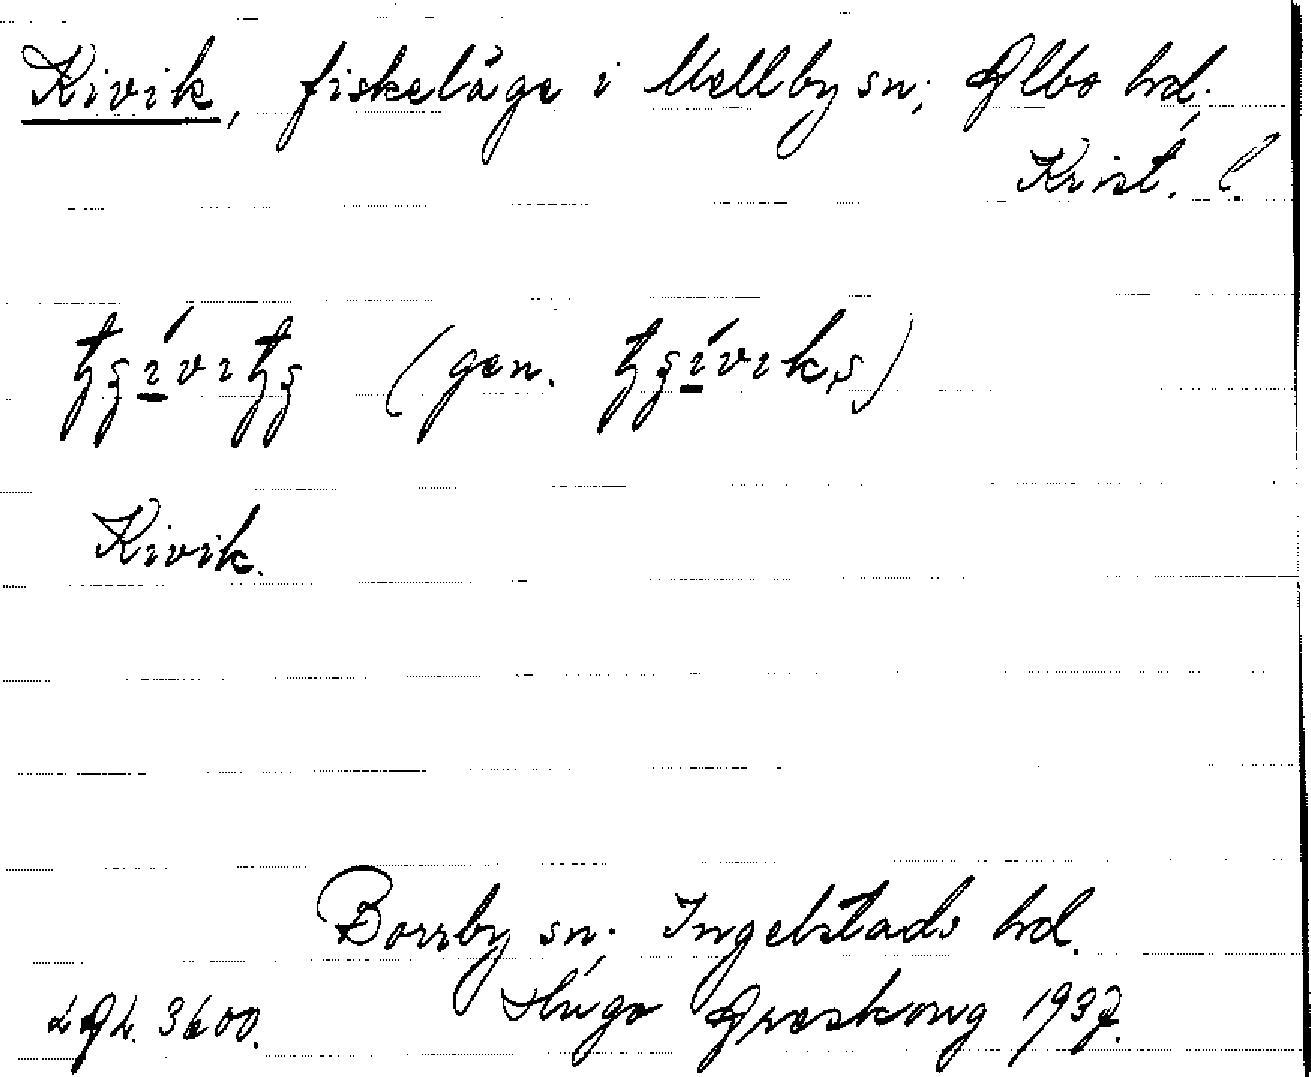 Kivik, fiskeläge i Mellby sn; Albo hd.
Krist. l.
(gen.
Kivik.
Borrby sn. Ingelstads hd.
LAL. 3600. Hugo Areskoug 1937.